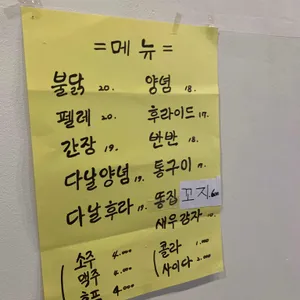 =메뉴=
불닭 20. 양념 18.
펠레 20. 후라이드 17.
간장 19. 반반 18.
다날양념 19. 통구이 17.
다날후라 19. 똥집 꼬지
새우감자
소주 4.000 콜라 1.000
맥주 4.000 사이다 2.000
호프 4.000